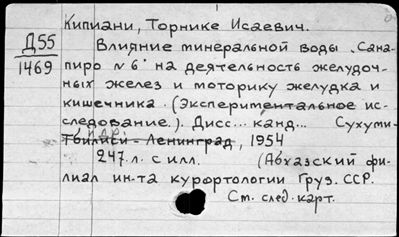 Кипиани, Торнике Исаевич.
Д55
1469
Влияние минеральной воды „Сана-
пиро N 6" на деятельность желудоч-
ных желез и моторику желудка и
кишечника. (Экспериментальное ис-
следование.). Дисс... канд... Сухуми-
Тбилиси - Ленинград, 1954
247 л. с илл. (Абхазский фи-
лиал ин-та курортологии Груз. ССР.
См. след. карт.